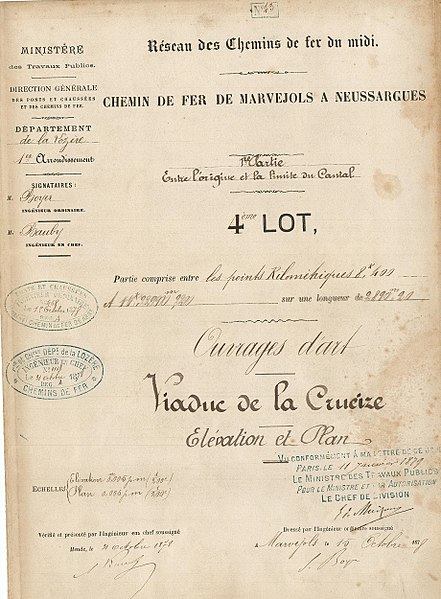 Nº 43
MINISTÈRE
des Travaux Publics.
DIRECTION GÉNÉRALE
DES PONTS ET CHAUSSÉES
ET DES CHEMINS DE FER.
DÉPARTEMENT
de la Lozère
1er Arrondissement
SIGNATAIRES :
M. Boyer
INGÉNIEUR ORDINAIRE.
M. Bauby
INGÉNIEUR EN CHEF.
Réseau des Chemins de fer du midi.
CHEMIN DE FER DE MARVEJOLS A NEUSSARGUES
1ère Partie
Entre l'origine et la limite du Cantal
4ème LOT,
Partie comprise entre les points Kilométriques 8k,400
A
sur une longueur de 2890m,20
Ouvrages d'art
Viaduc de la Crueize
Elévation et Plan
PONTS ET CHAUSSÉES
CHEMIN DE FER
CHINS DÉPt. de la LOZÈRE
INGÉNIEUR EN CHEF
CHEMINS DE FER
ECHELLES
Elévation 0.005 p.m
Plan 0.005 p.m
VU CONFORMÉMENT A MA LETTRE DE CE JOUR
PARIS, LE 11 janvier 1879
LE MINISTRE DES TRAVAUX PUBLICS
POUR LE MINISTRE ET PAR AUTORISATION
LE CHEF DE DIVISION
Vérifié et présenté par l'Ingénieur en chef soussigné
Mende, le 21 octobre 1878
Dressé par l'Ingénieur ordinaire soussigné
à Marvejols le 15 Octobre